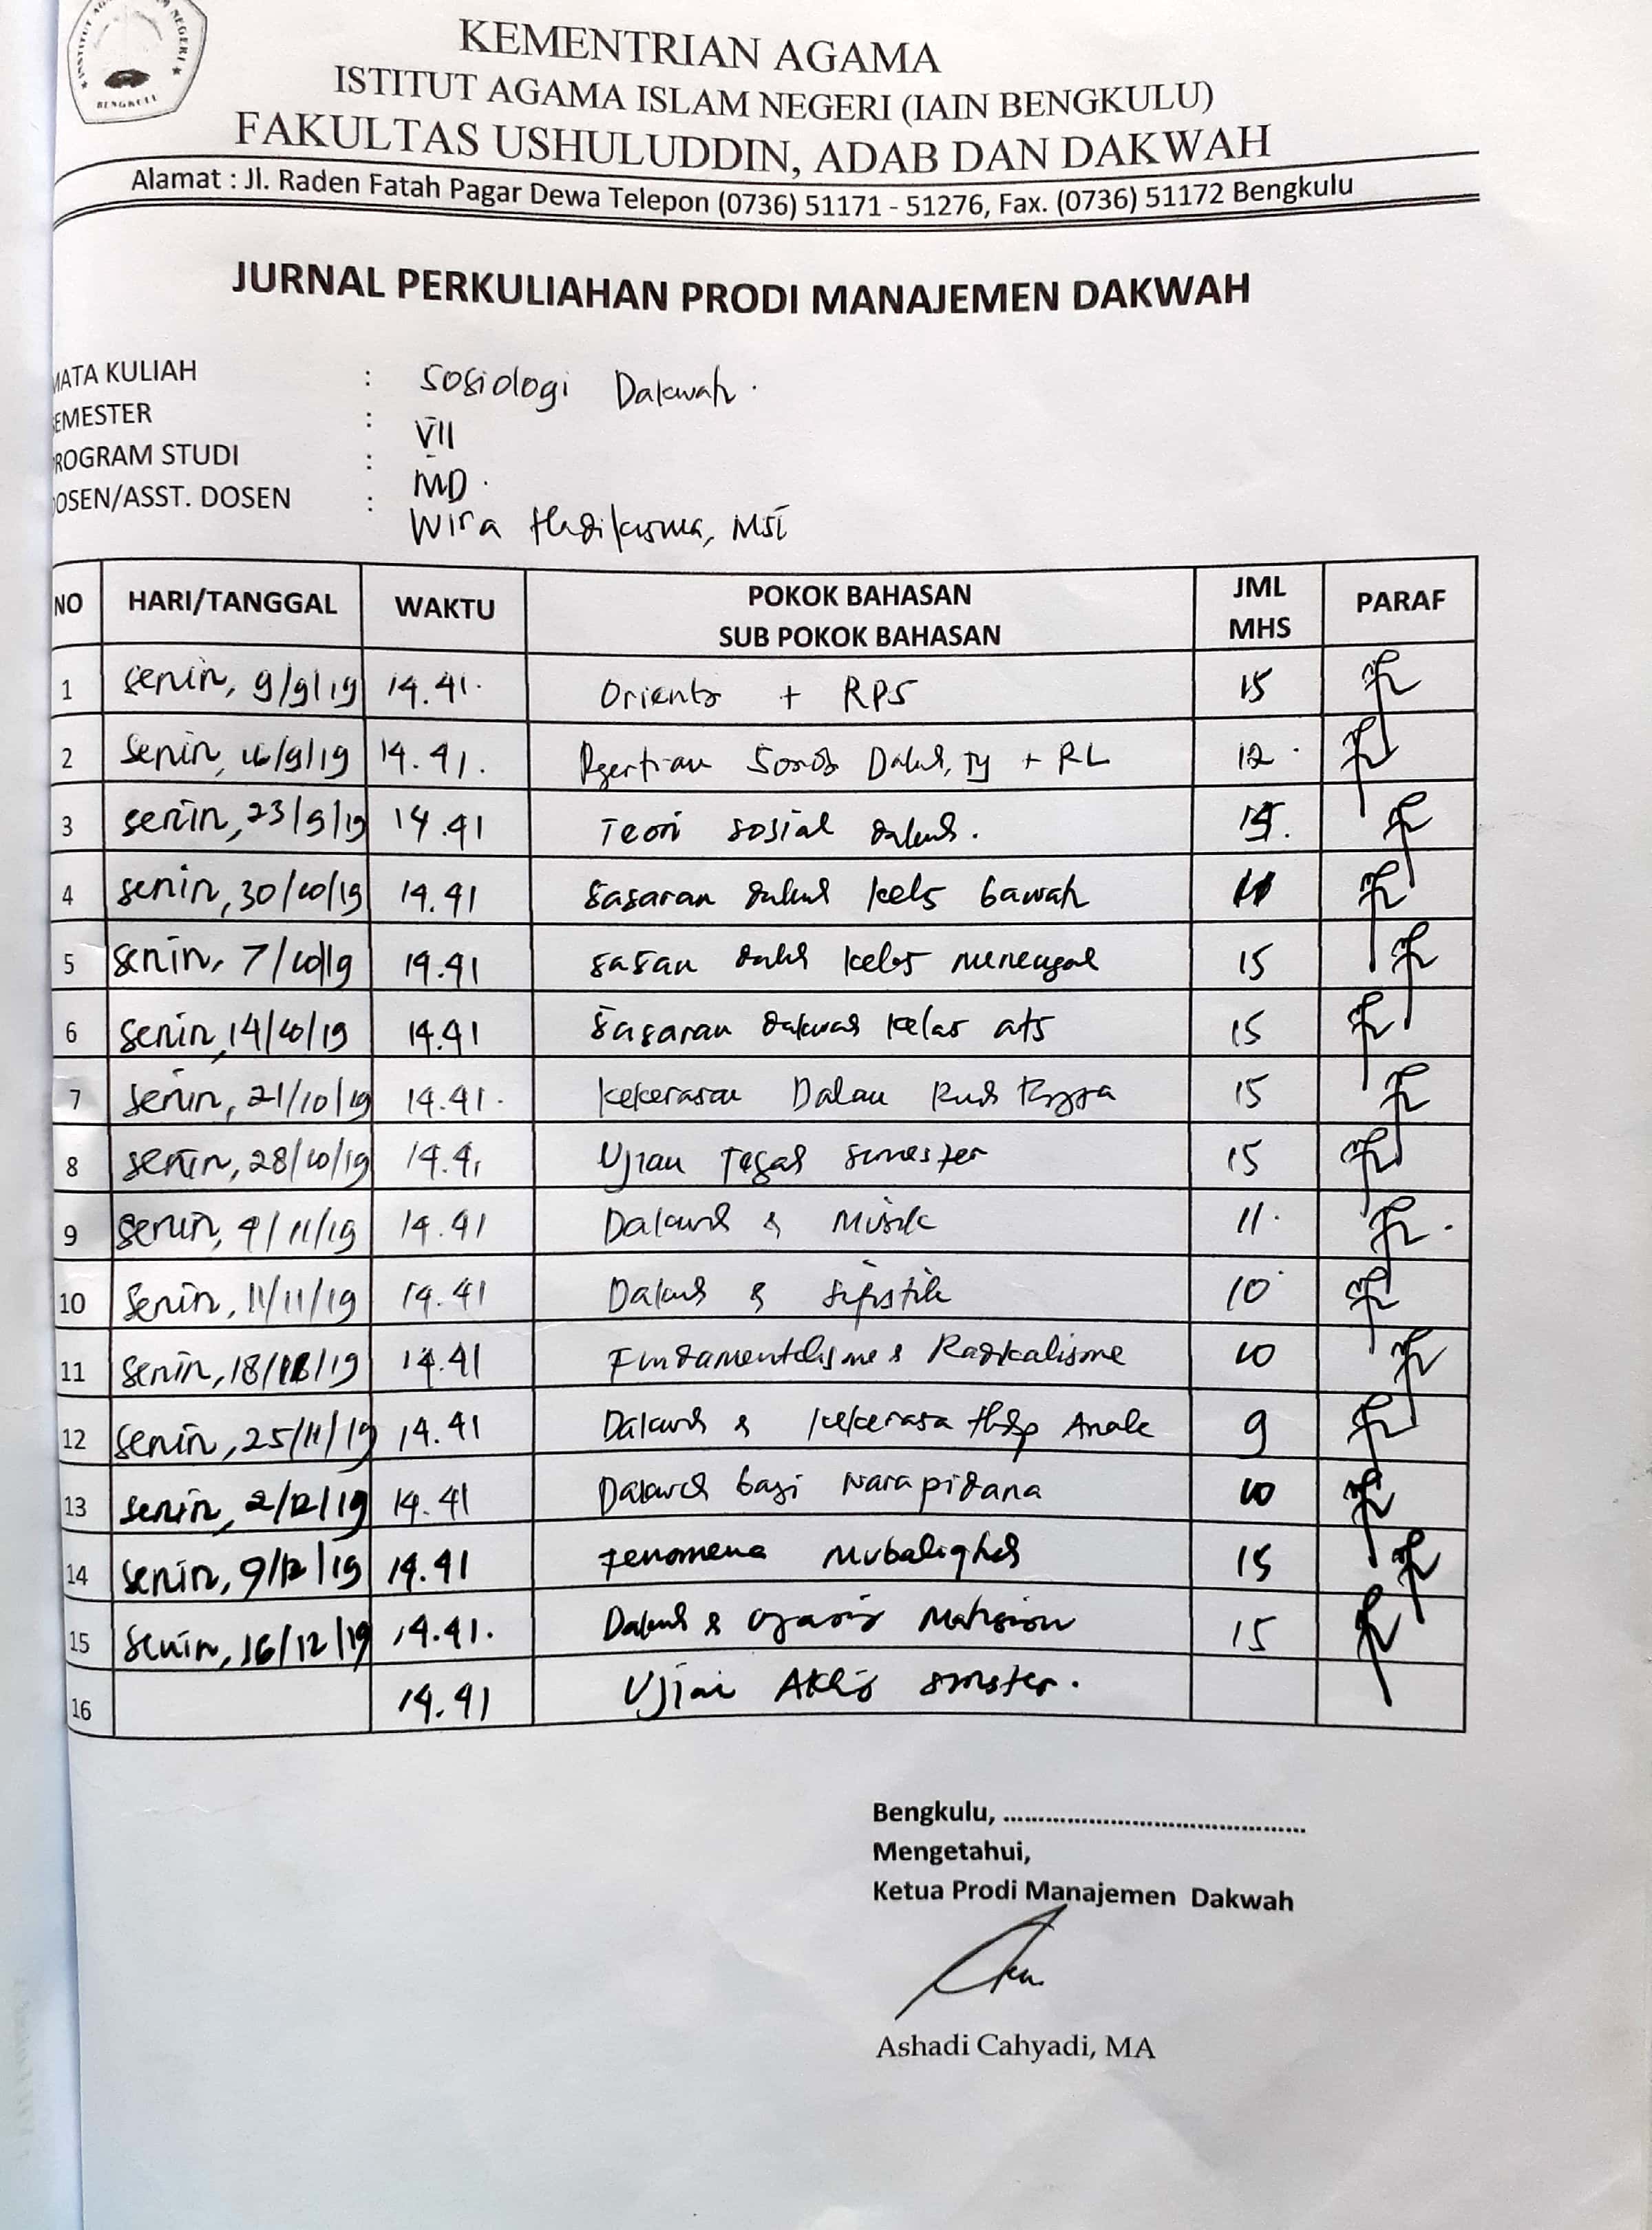 BENGKULU
KEMENTRIAN AGAMA
ISTITUT AGAMA ISLAM NEGERI (IAIN BENGKULU)
FAKULTAS USHULUDDIN, ADAB DAN DAKWAH
Alamat : Jl. Raden Fatah Pagar Dewa Telepon (0736) 51171 - 51276, Fax. (0736) 51172 Bengkulu
JURNAL PERKULIAHAN PRODI MANAJEMEN DAKWAH
MATA KULIAH : Sosiologi Dakwah.
EMESTER : VII
ROGRAM STUDI : MD.
OSEN/ASST. DOSEN : Wira Hadikusma, MSi
NO HARI/TANGGAL WAKTU POKOK BAHASAN SUB POKOK BAHASAN JML MHS PARAF
1 Senin, 9/9/19 14.41. + RPS 15
2 Senin, 16/9/19 14.41. + RL 12
3 Senin, 23/9/19 14.41 Teori sosial 15.
4 Senin, 30/10/19 14.41 Sasaran bawah 11
5 Senin, 7/10/19 14.41 15
6 Senin, 14/10/19 14.41 Sasaran kelas 15
7 Senin, 21/10/19 14.41. kekerasan Dalam 15
8 Senin, 28/10/19 14.41 Ujian semester 15
9 Senin, 4/11/19 14.41 & Musik 11.
10 Senin, 11/11/19 14.41 & 10
11 Senin, 18/11/19 14.41 Fundamentalisme & Radikalisme 10
12 Senin, 25/11/19 14.41 & Anak 9
13 Senin, 2/12/19 14.41 bagi Narapidana 10
14 Senin, 9/12/19 14.41 Fenomena 15
15 Senin, 16/12/19 14.41. & 15
16 14.41 Ujian
Bengkulu, ............................................
Mengetahui,
Ketua Prodi Manajemen Dakwah
Ashadi Cahyadi, MA